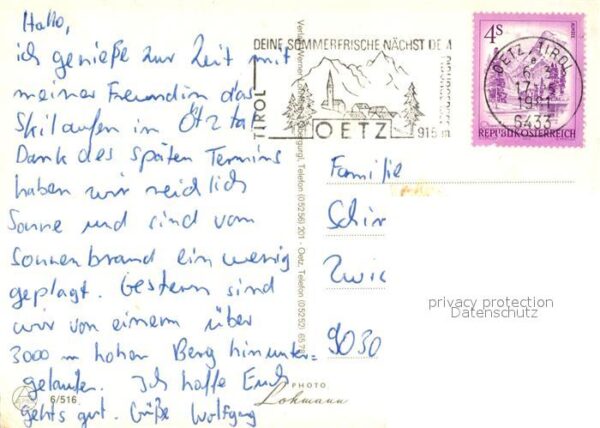 Hallo,
ich genieße zur Zeit mit
meiner Freundin das
Skilaufen im Ötztal
Dank des späten Termins
haben wir reichlich
Sonne und sind vom
Sonnenbrand ein wenig
geplagt. Gestern sind
wir von einem über
3000 m hohen Berg hinunter=
gelaufen. Ich hoffe Euch
gehts gut. Grüße Wolfgang
6/516
DEINE SOMMERFRISCHE NÄCHST DEM
TIROL
OETZ
915 m
4S
OETZ, TIROL
6433
REPUBLIK ÖSTERREICH
Telefon (05256) 201 - Oetz, Telefon (05252)
Familie
Schir
Zwic
9030
privacy protection
Datenschutz
PHOTO
Lohmann